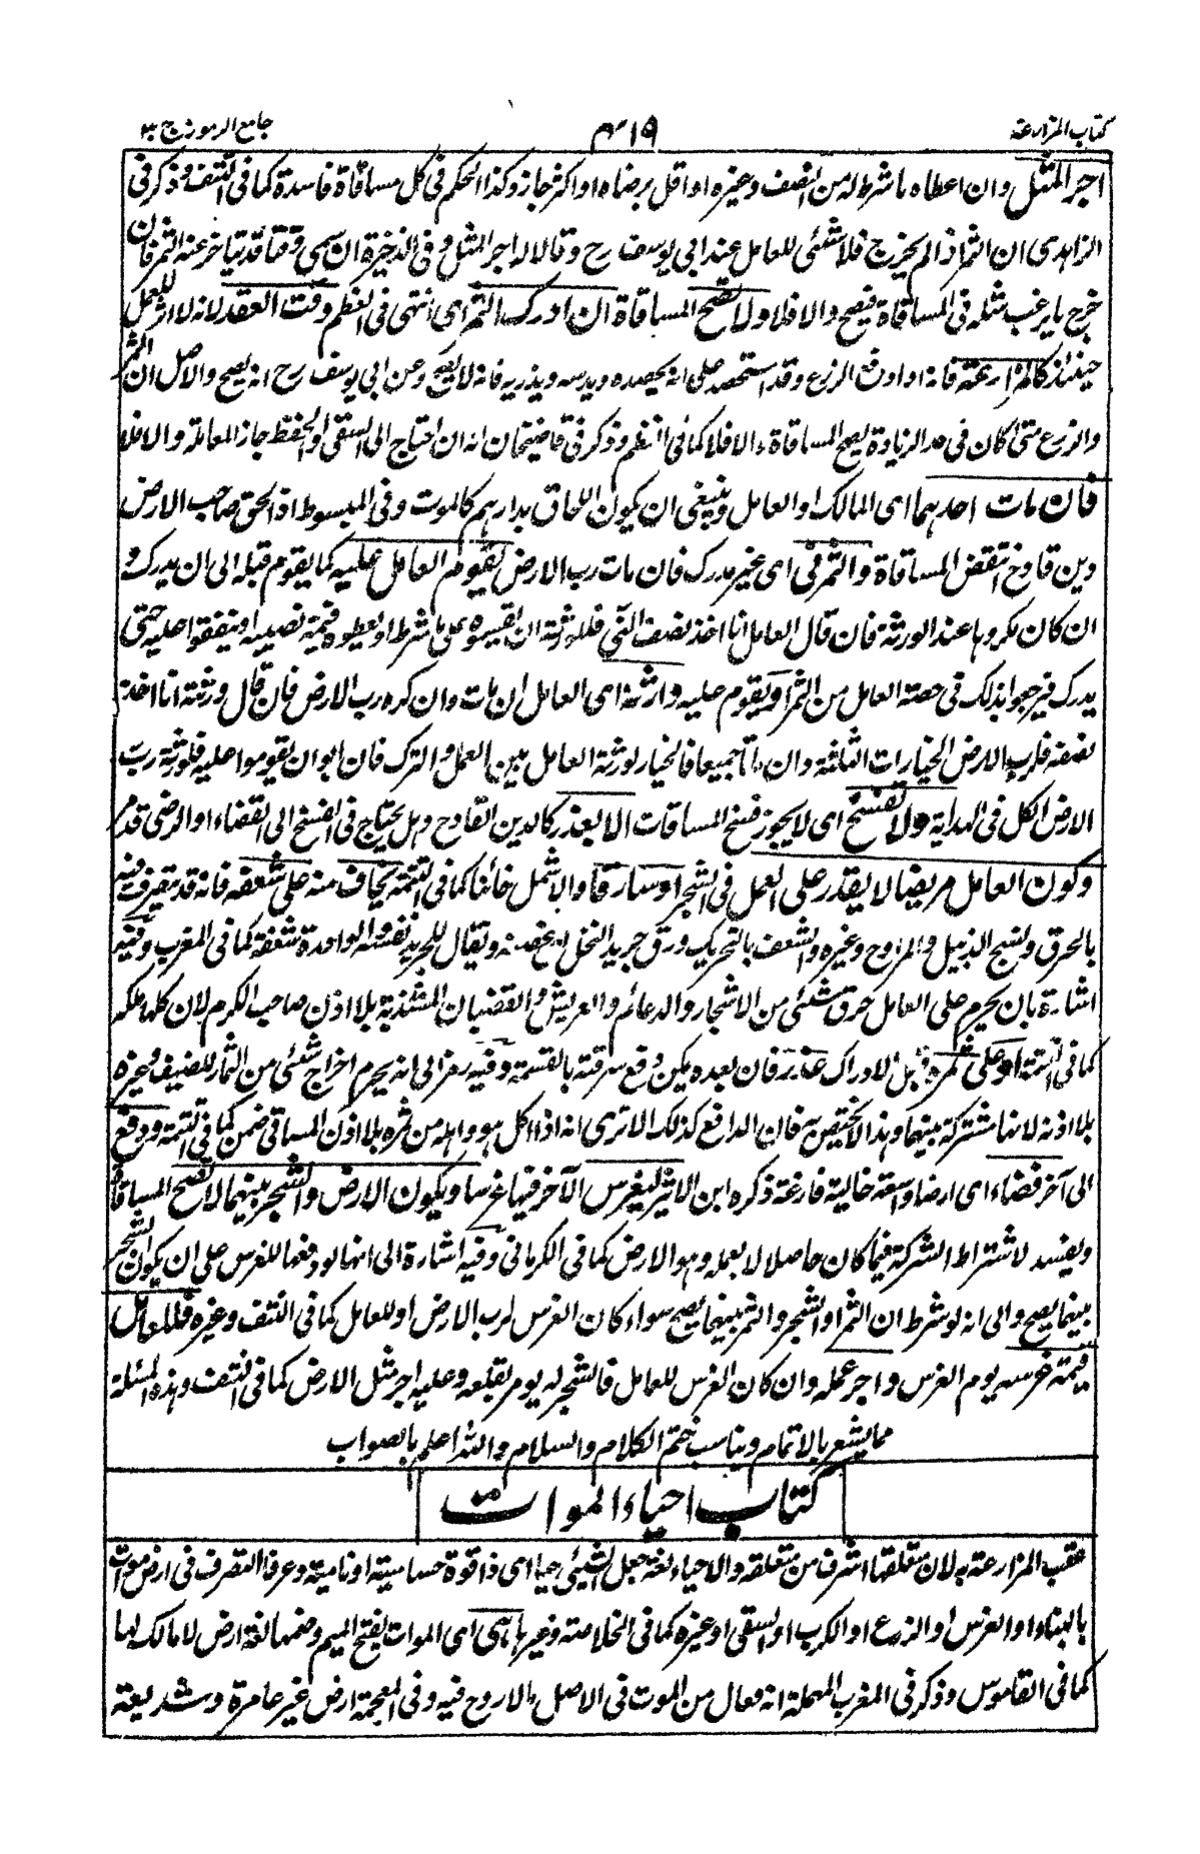 كتاب المزارعة
٤١٩
جامع الرموز ج ٣
اجر المثل وان اعطاه ما شرط له من النصف وغيره او اقل برضاه او اكثر جاز وكذا الحكم فى كل مساقاة فاسدة كما فى النتف وذكر فى
الزاهدى ان الثمر اذا لم يخرج فلا شئى للعامل عند ابى يوسف رح وقالا له اجر المثل وفى الذخيرة ان سمى وقتا قد يتاخر عنه الثمر فان
خرج ما يرغب مثله فى المساقاة فيصح والا فلا ولا تصح المساقاة ان ادرك الثمر اى انتهى فى العظم وقت العقد لانه لا اثر للعمل
حينئذ كالمزارعة فانه لو دفع الزرع وقد استحصد على انه يحصده ويدسه ويذريه فانه لا يصح وعن ابى يوسف رح انه يصح والاصل ان الثمر
والزرع متى كان فى حد الزيادة يصح المساقاة والا فلا كما فى النظم وذكر فى قاضيخان انه ان احتاج الى السقى او الحفظ جاز المعاملة والا فلا
فان مات احدهما اى المالك او العامل وينبغى ان يكون اللحاق بدارهم كالموت وفى المبسوط اذا لحق صاحب الارض
دين فادح انتقض المساقاة والثمر نى اى غير مدرك فان مات رب الارض يقوم العامل عليه كما يقوم قبله الى ان يدرك و
ان كان مكروها عند الورثة فان قال العامل انا اخذ نصف النى فللورثة ان يقسموه على ما شرط او يعطوه قيمة نصيبه او ينفقوا عليه حتى
يدرك فيرجعوا بذلك فى حصة العامل من الثمر او يقوم عليه وارثه اى العامل ان مات وان كره رب الارض فان قال ورثته انا اخذ
نصفه فلرب الارض الخيارات الثلثة وان ماتا جميعا فالخيار لورثة العامل بين العمل والترك فان ابوا ان يقوموا عليه فلورثة رب
الارض الكل فى الهداية ولا تفسخ اى لا يجوز فسخ المساقات الا بعذر كالدين الفادح وهل يحتاج فى الفسخ الى القضاء او الرضى قد مر
وكون العامل مريضا لا يقدر على العمل فى الشجر او سارقا والاشمل خائنا كما فى التتمة يخاف منه على سعفه فانه قد يتصرف فيه
بالحرق ونسج الزبيل والمراوح وغيره والسعف بالتحريك ورق جريد النخل اى غصنه ويقال للجريد نفسه الواحدة سعفة كما فى المغرب وفيه
اشارة بان يحرم على العامل حرق شئى من الاشجار والدعائم والعريش والقضبان المشذبة بلا اذن صاحب الكرم لان كلها ملكه
كما فى التتمة او على ثمره قبل الادراك عذر فان بعده يمكن دفع سرقته بالقسمة وفيه رمز الى انه يحرم اخراج شئى من الثمار للضيف وغيره
بلا اذنه لانها مشتركة بينهما وهذا لا يختص به فان الدافع كذلك الا ترى انه اذا اكل هو واهله من ثمره بلا اذن المساقى ضمن كما فى التتمة ودفع
الى آخر فضاء اى ارضا واسعة خالية فارغة ذكره ابن الاثير ليغرس الآخر فيها غرسا ويكون الارض والشجر بينهما لا تصح المساقاة
ويفسد لاشتراط الشركة فيما كان حاصلا لا بعمله وهو الارض كما فى الكرمانى وفيه اشارة الى انها لو دفعها للغرس على ان يكون الشجر
بينهما يصح والى انه لو شرط ان الثمر او الشجر والثمر بينهما يصح سواء كان الغرس لرب الارض او للعامل كما فى النتف وغيره فللعامل
قيمة غرسه يوم الغرس واجر عمله وان كان الغرس للعامل فالشجر له يوم يقلعه وعليه اجر مثل الارض كما فى النتف وهذه المسئلة
مما يشعر بالاتمام ويناسب ختم الكلام والسلام والله اعلم بالصواب
كتاب احياء الموات
عقب المزارعة به لان متعلقها اشرف من متعلقه والاحياء لغة جعل الشئى حيا اى ذا قوة حساسية او نامية وعرفا التصرف فى ارض موات
بالبناء او الغرس او الزرع او الكرب او السقى او غيره كما فى الخلاصة وغيرها هى اى الموات بفتح الميم وضمها لغة ارض لا مالك لها
كما فى القاموس وذكر فى المغرب المهملة انه فعال من الموت فى الاصل ما لا روح فيه وفى المعجمة ارض غير عامرة وشريعة